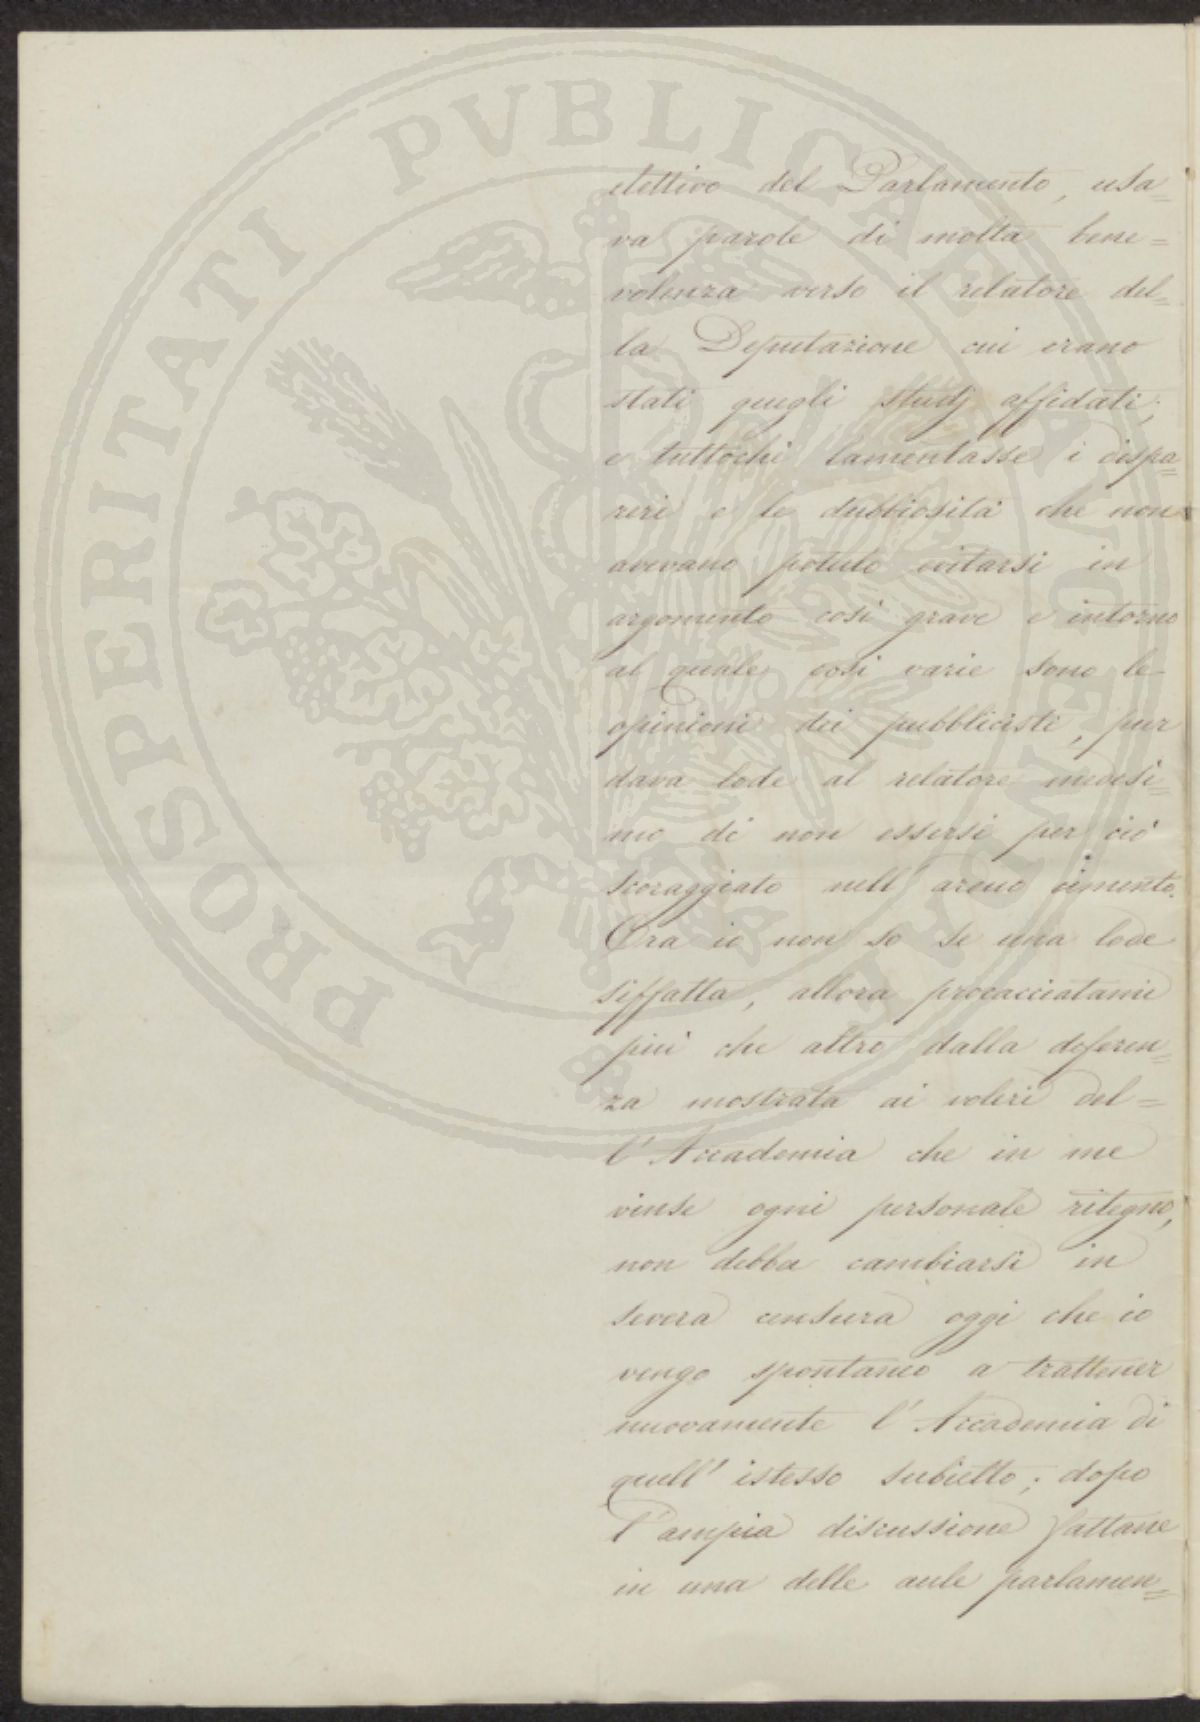 PROSPERITATI PVBLICAE AVGENDAE
elettivo del Parlamento, usa=
va parole di molta bene=
volenza verso il relatore del=
la Deputazione cui erano
stati quegli studj affidati;
e tuttochè lamentasse i dispa=
reri e le dubbiosità che non
avevano potuto evitarsi in
argomento così grave e intorno
al quale così varie sono le
opinioni dei pubblicisti, pur
dava lode al relatore medesi=
mo di non essersi per ciò
scoraggiato nell'arduo cimento.
Ora io non so se una lode
siffatta, allora procacciatami
più che altro dalla deferen=
za mostrata ai voleri del=
l'Accademia che in me
vinse ogni personale ritegno,
non debba cambiarsi in
severa censura oggi che io
vengo spontaneo a trattener
nuovamente l'Accademia di
quell'istesso subietto; dopo
l'ampia discussione fattane
in una delle aule parlamen=